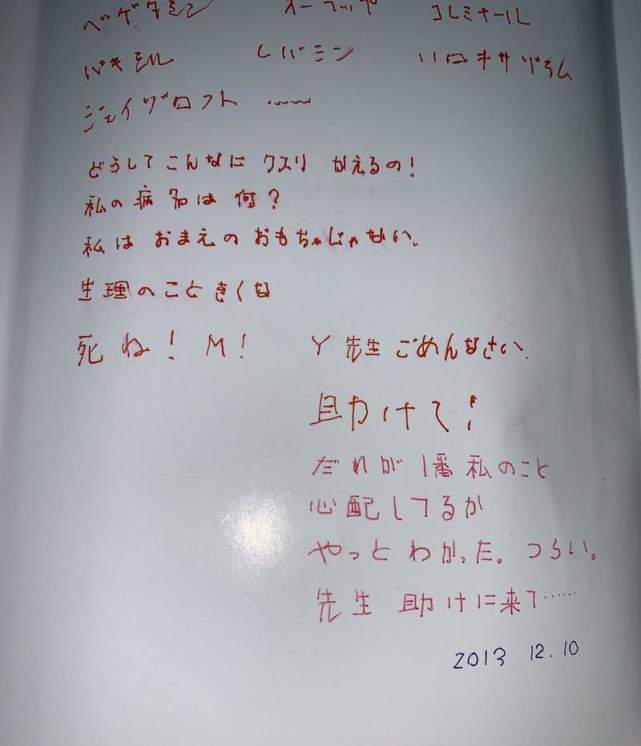 ベゲタミン オーラップ コレミナール
パキシル レバミン ハロキサゾラム
ジェイゾロフト ……
どうしてこんなに クスリ かえるの!
私の病名は何?
私はおまえのおもちゃじゃない。
生理のこときくな
死ね! M! Y先生ごめんなさい。
助けて!
だれが1番私のこと
心配してるか
やっとわかった。つらい。
先生 助けに来て……
2013 12.10